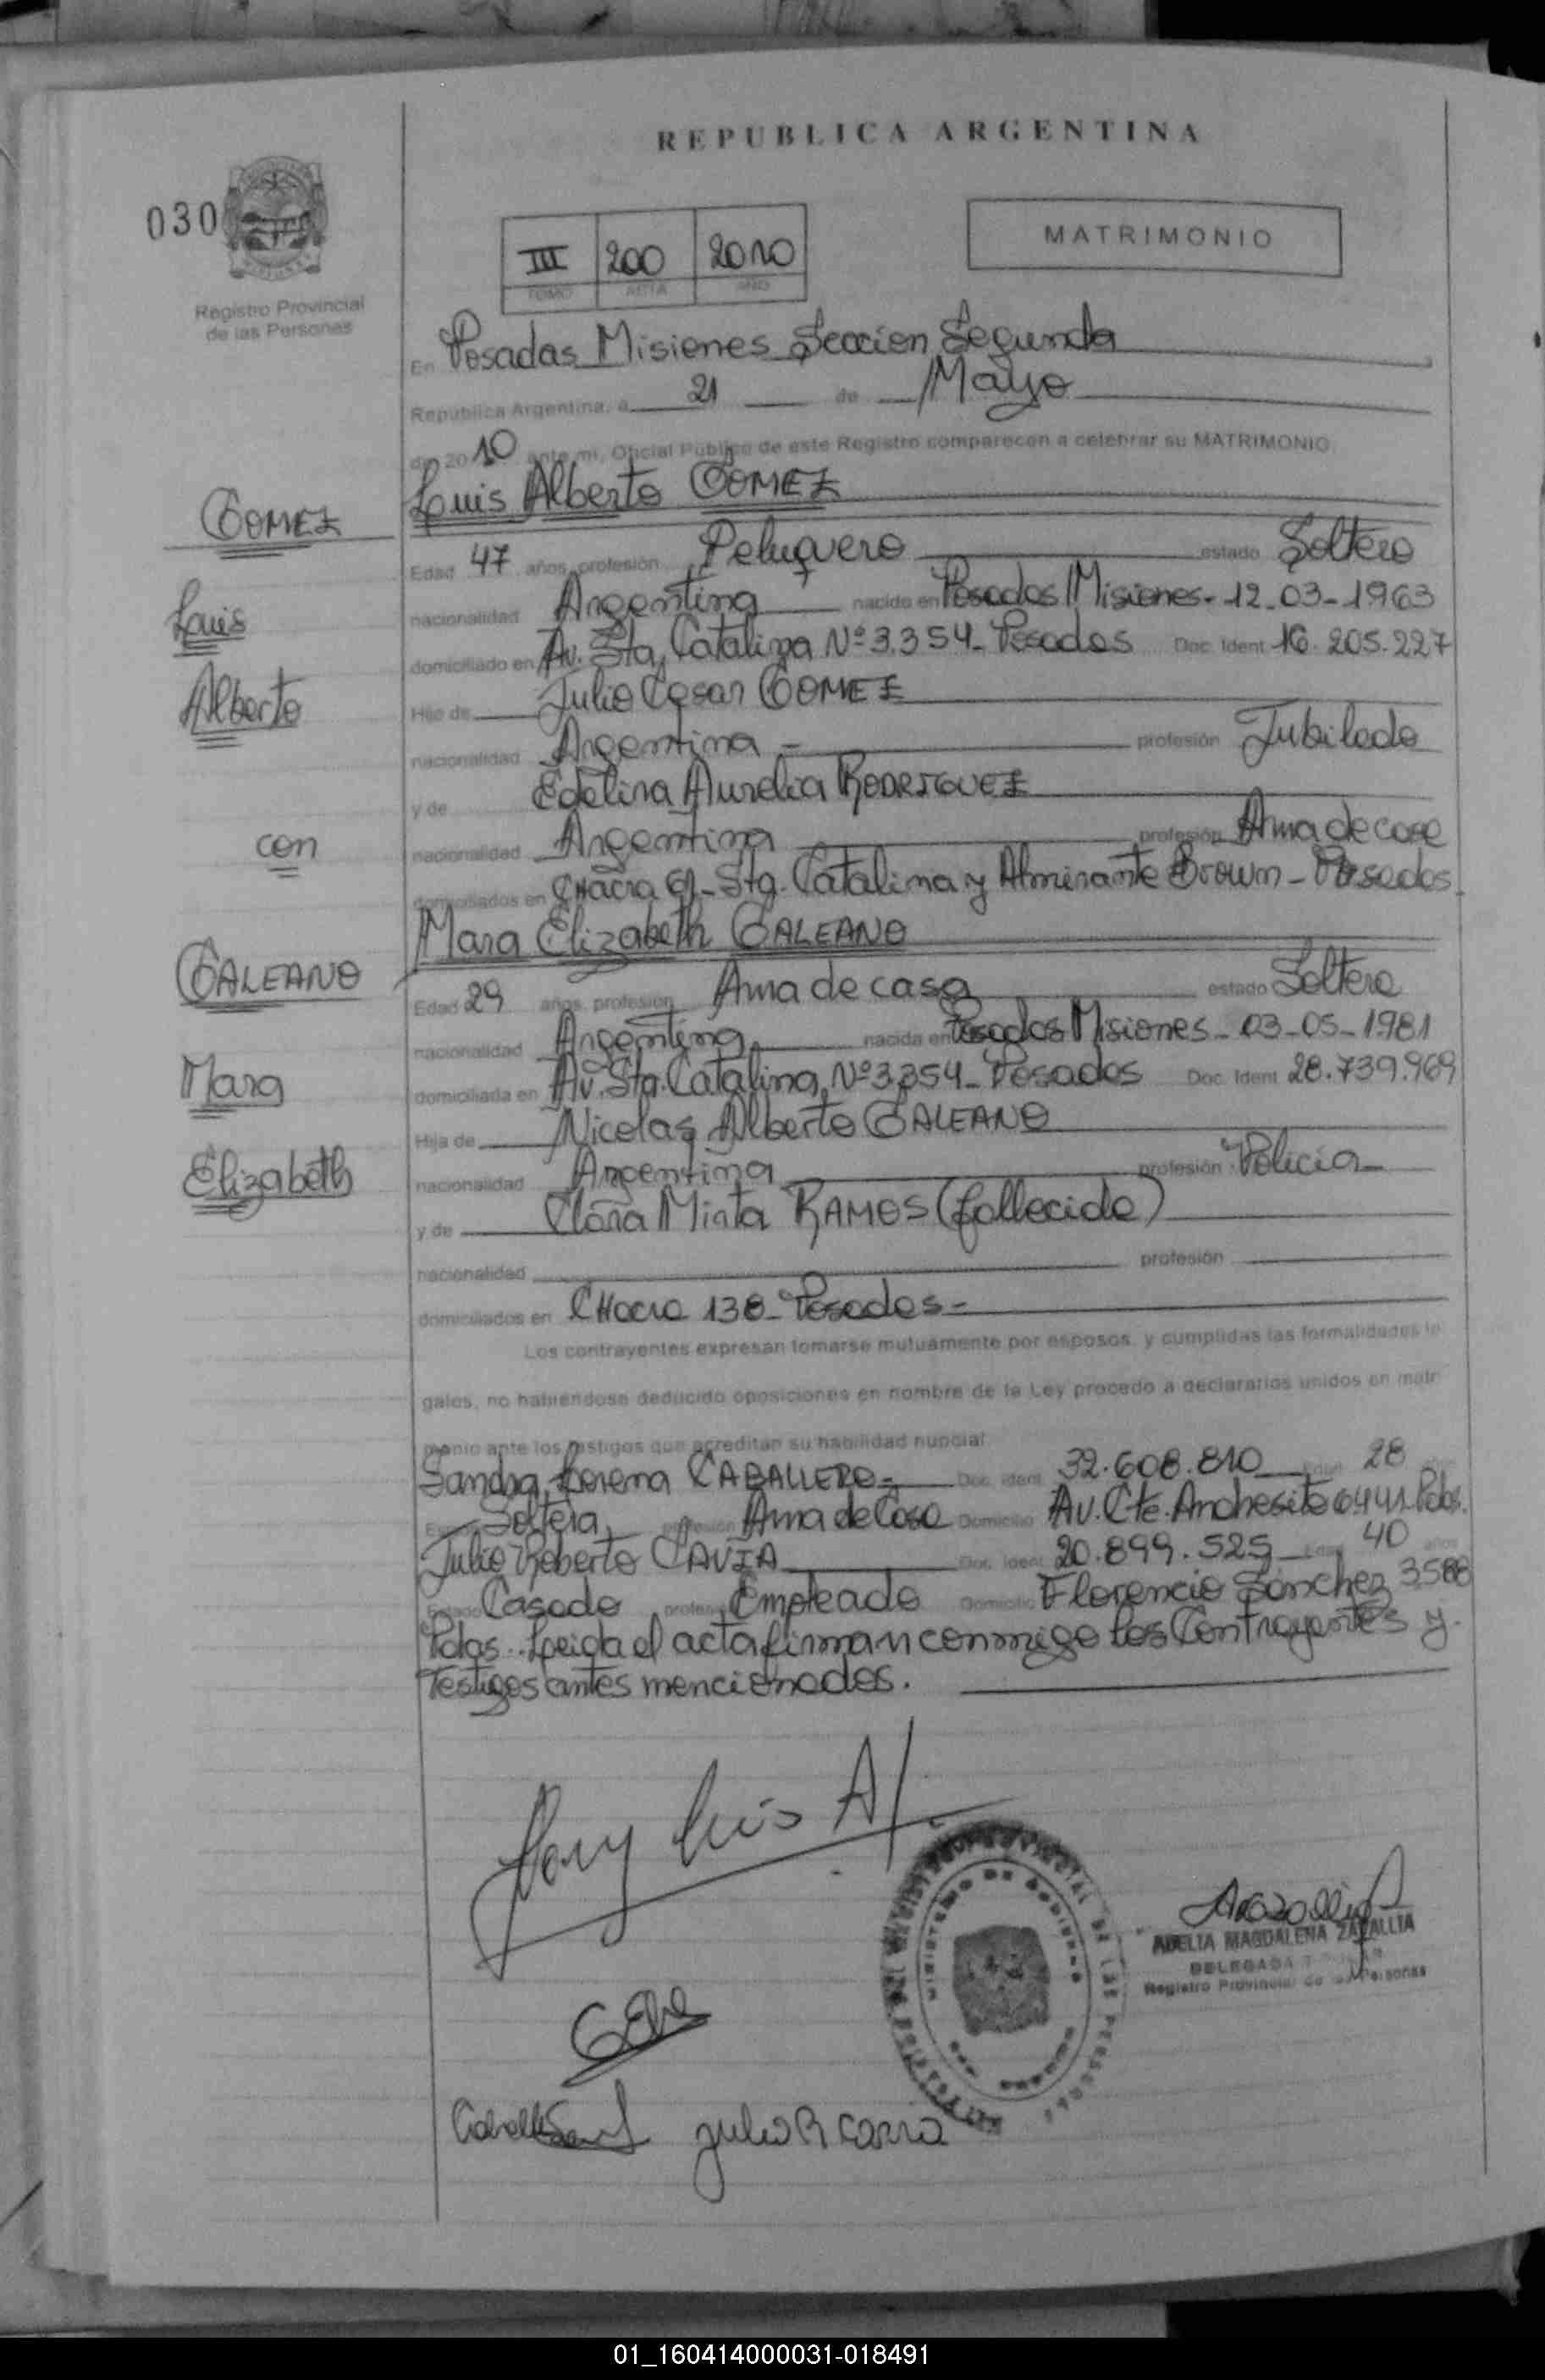 REPUBLICA ARGENTINA
030
Registro Provincial
de las Personas
III 200 2010
TOMO ACTA AÑO
MATRIMONIO
En Posadas Misiones Seccion Segunda
República Argentina, a 21 de Mayo
de 2010 ante mi, Oficial Público de este Registro comparecen a celebrar su MATRIMONIO
Luis Alberto GOMEZ
GOMEZ
Edad 47 años, profesión Peluquero estado Soltero
nacionalidad Argentina nacido en Posadas Misiones - 12-03-1963
Luis
domiciliado en Av. Sta. Catalina Nº 3.354 - Posadas Doc. Ident 16.205.227
Hijo de Julio Cesar GOMEZ
Alberto
nacionalidad Argentina - profesión Jubilado
y de Edelira Aurelia RODRIGUEZ
nacionalidad Argentina profesión Ama de casa
con
domiciliados en CHacra Sta. Catalina y Almirante Brown - Posadas
Mara Elizabeth GALEANO
GALEANO
Edad 29 años, profesión Ama de casa estado Soltera
nacionalidad Argentina nacida en Posadas Misiones - 03-05-1981
Mara
domiciliada en Av. Sta. Catalina Nº 3.354 - Posados Doc. Ident 28.739.969
Hija de Nicolas Alberto GALEANO
Elizabeth
nacionalidad Argentina profesión Policia
y de Clara Mirta RAMOS (fallecida)
nacionalidad profesión
domiciliados en CHacra 138 - Posadas -
Los contrayentes expresan tomarse mutuamente por esposos, y cumplidas las formalidades le
gales, no habiéndose deducido oposiciones en nombre de la Ley procedo a declararlos unidos en matri
monio ante los testigos que acreditan su habilidad nupcial
Sandra Lorena CABALLERO - Doc. Ident 32.608.810 Edad 28 años
Estado Soltera profesión Ama de Casa Domicilio Av. Cte. Andresito 6441 Pdas.
Julio Roberto CAVIA Doc. Ident 20.899.525 Edad 40 años
Estado Casado profesión Empleado Domicilio Florencio Sanchez 3588
Pdas. Leida el acta firman conmigo los Contrayentes y
Testigos antes mencionados.
Luis Al.
ADELIA MAGDALENA ZARALLIA
DELEGADA
Registro Provincial de las Personas
MINISTERIO DE GOBIERNO
Julio R Cavia
01_160414000031-018491